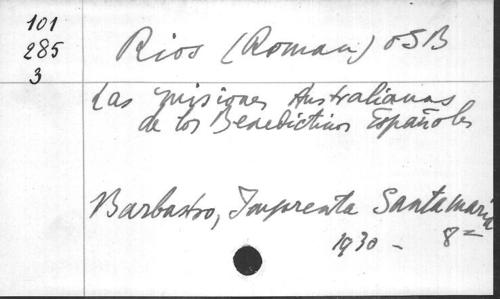 101
285
3
Rios (Roman) OSB
Las misiones Australianas
de los Benedictinos Españoles
Barbastro, Imprenta Santamaria
1930 - 8=